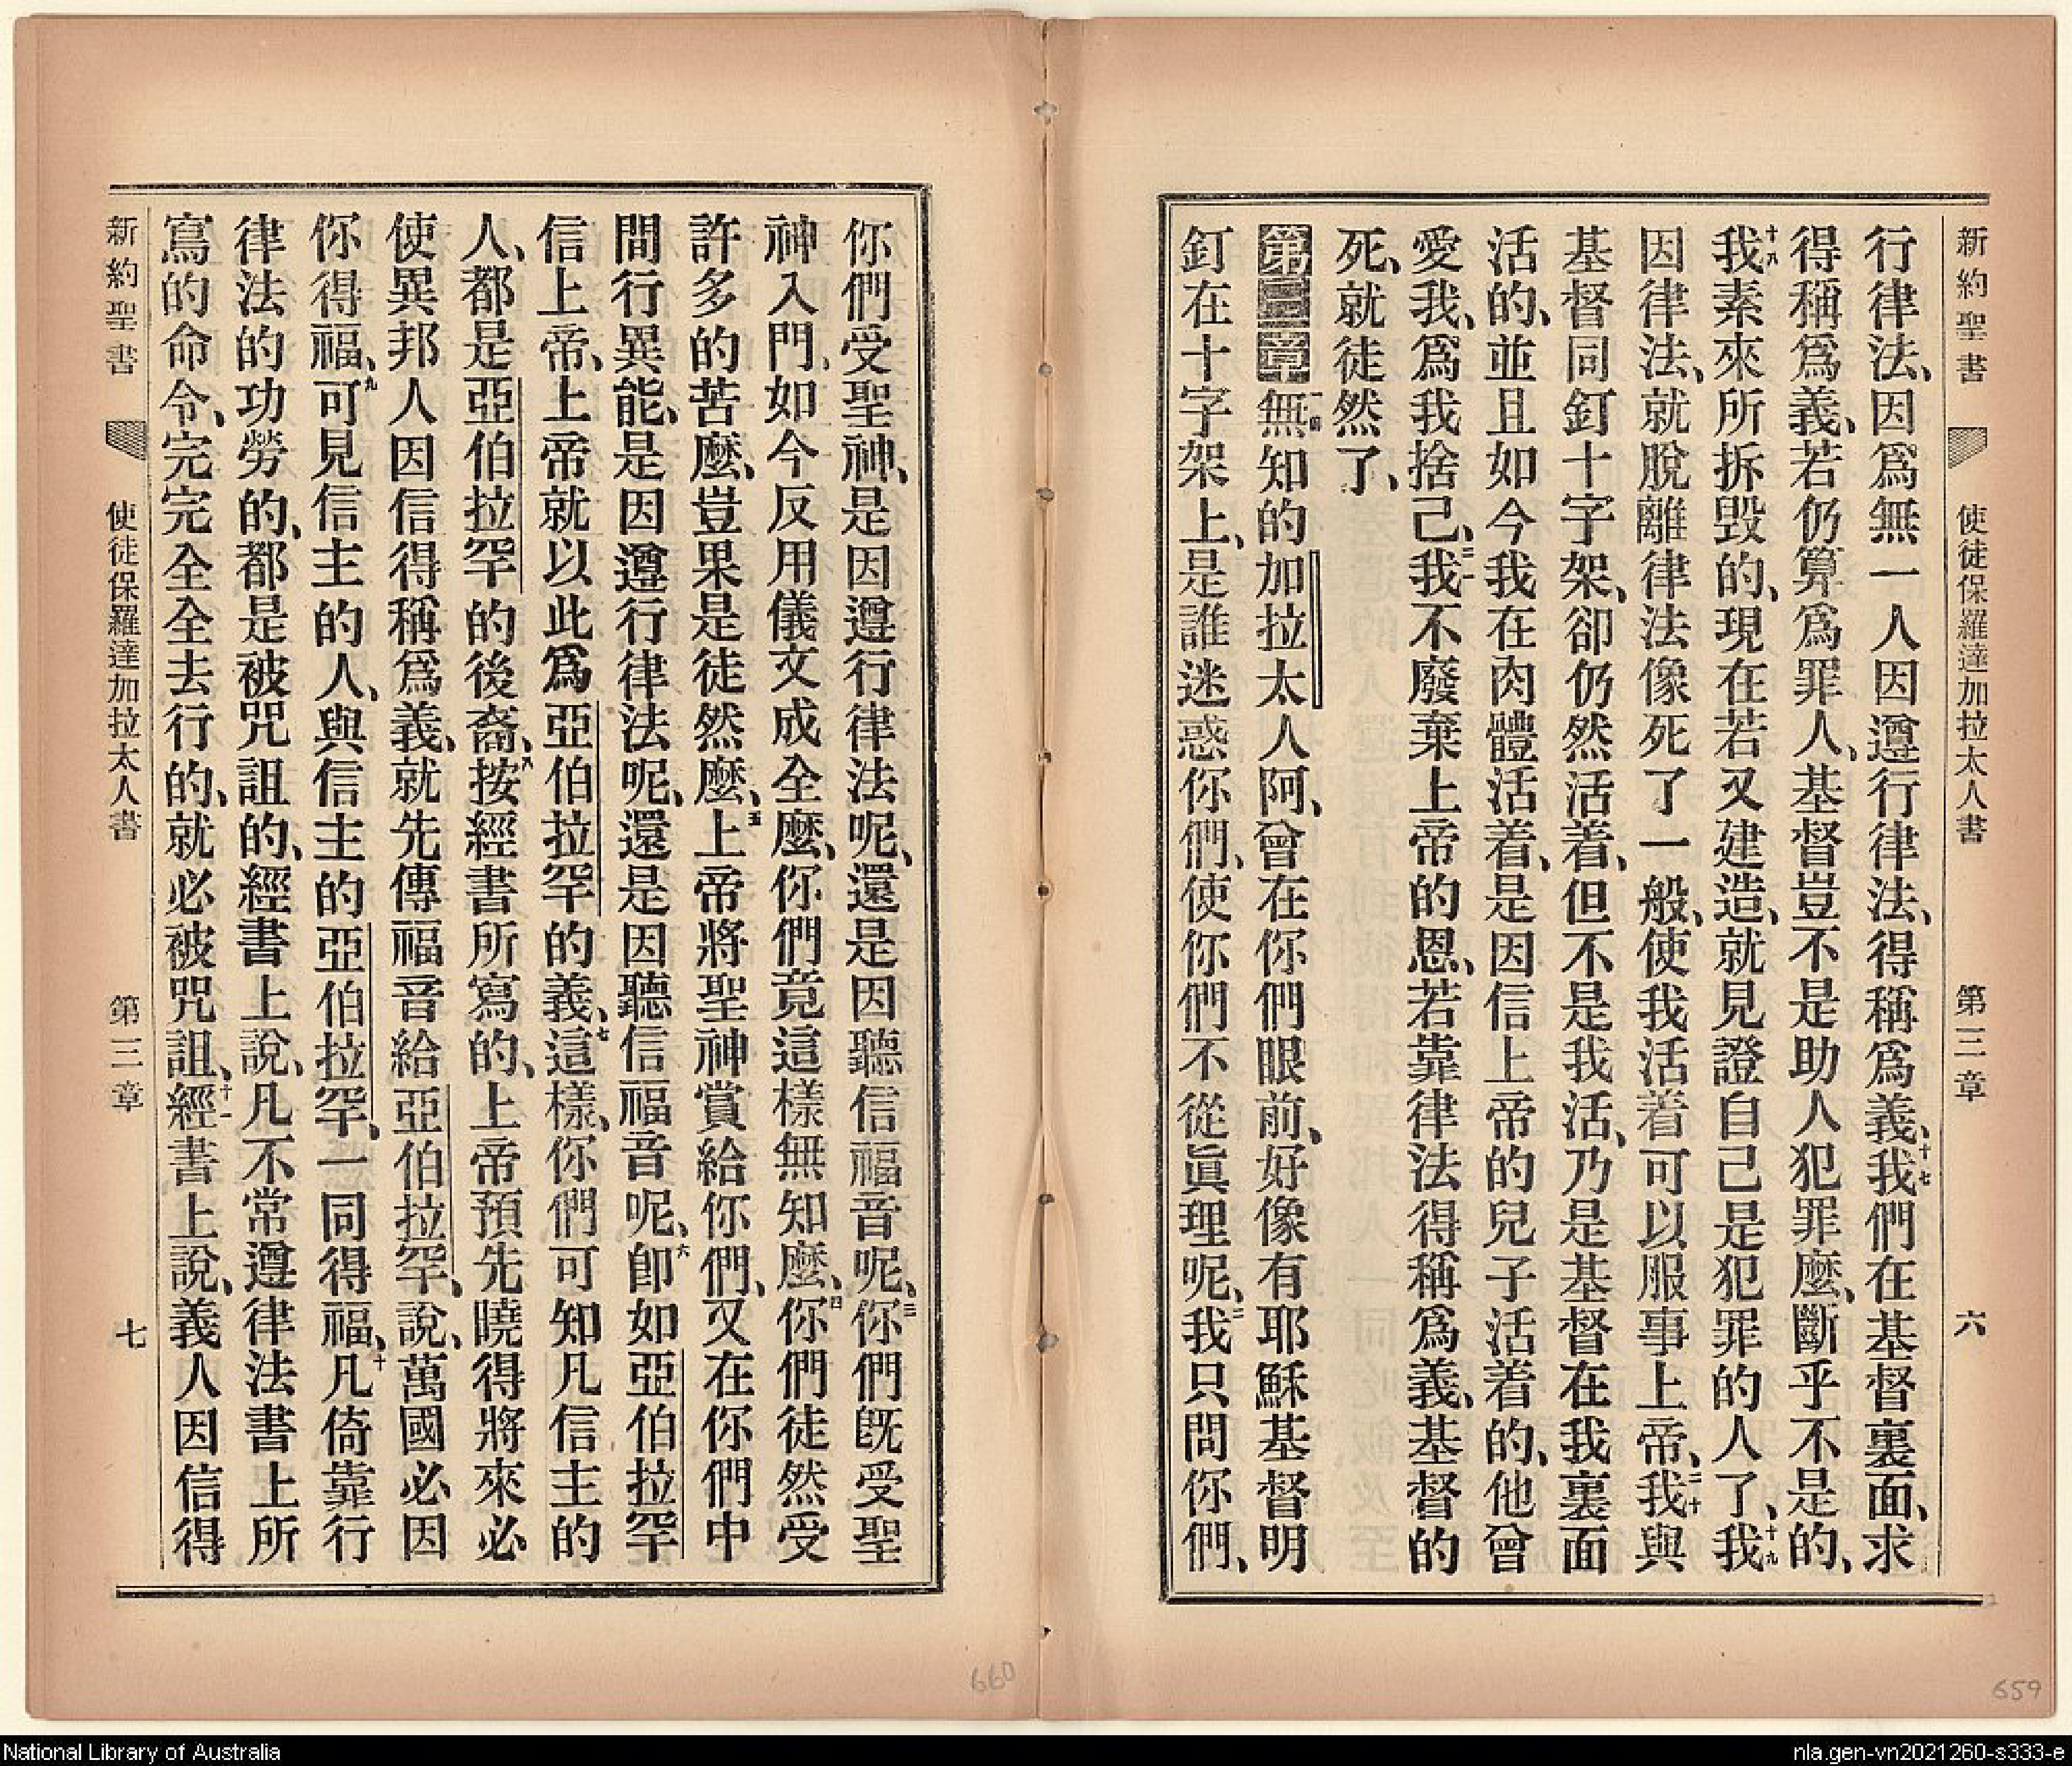 新約聖書 使徒保羅達加拉太人書 第三章 六
行律法、因爲無一人因遵行律法、得稱爲義、十七我們在基督裏面、求
得稱爲義、若仍算爲罪人、基督豈不是助人犯罪麽、斷乎不是的、
十八我素來所拆毀的、現在若又建造、就見證自己是犯罪的人了、十九我
因律法、就脫離律法像死了一般、使我活着可以服事上帝、二十我與
基督同釘十字架、卻仍然活着、但不是我活、乃是基督在我裏面
活的、並且如今我在肉體活着、是因信上帝的兒子活着的、他曾
愛我、爲我捨己、二一我不廢棄上帝的恩、若靠律法得稱爲義、基督的
死、就徒然了、
第三章 一無知的加拉太人阿、曾在你們眼前、好像有耶穌基督明
釘在十字架上、是誰迷惑你們、使你們不從眞理呢、二我只問你們、
你們受聖神、是因遵行律法呢、還是因聽信福音呢、三你們旣受聖
神入門、如今反用儀文成全麽、你們竟這樣無知麽、四你們徒然受
許多的苦麽、豈果是徒然麽、五上帝將聖神賞給你們、又在你們中
間行異能、是因遵行律法呢、還是因聽信福音呢、六卽如亞伯拉罕
信上帝、上帝就以此爲亞伯拉罕的義、七這樣、你們可知凡信主的
人、都是亞伯拉罕的後裔、八按經書所寫的、上帝預先曉得將來必
使異邦人因信得稱爲義、就先傳福音給亞伯拉罕、說、萬國必因
你得福、九可見信主的人、與信主的亞伯拉罕、一同得福、十凡倚靠行
律法的功勞的、都是被咒詛的、經書上說、凡不常遵律法書上所
寫的命令、完完全全去行的、就必被咒詛、十一經書上說、義人因信得
新約聖書 使徒保羅達加拉太人書 第三章 七
660
659
National Library of Australia
nla.gen-vn2021260-s333-e